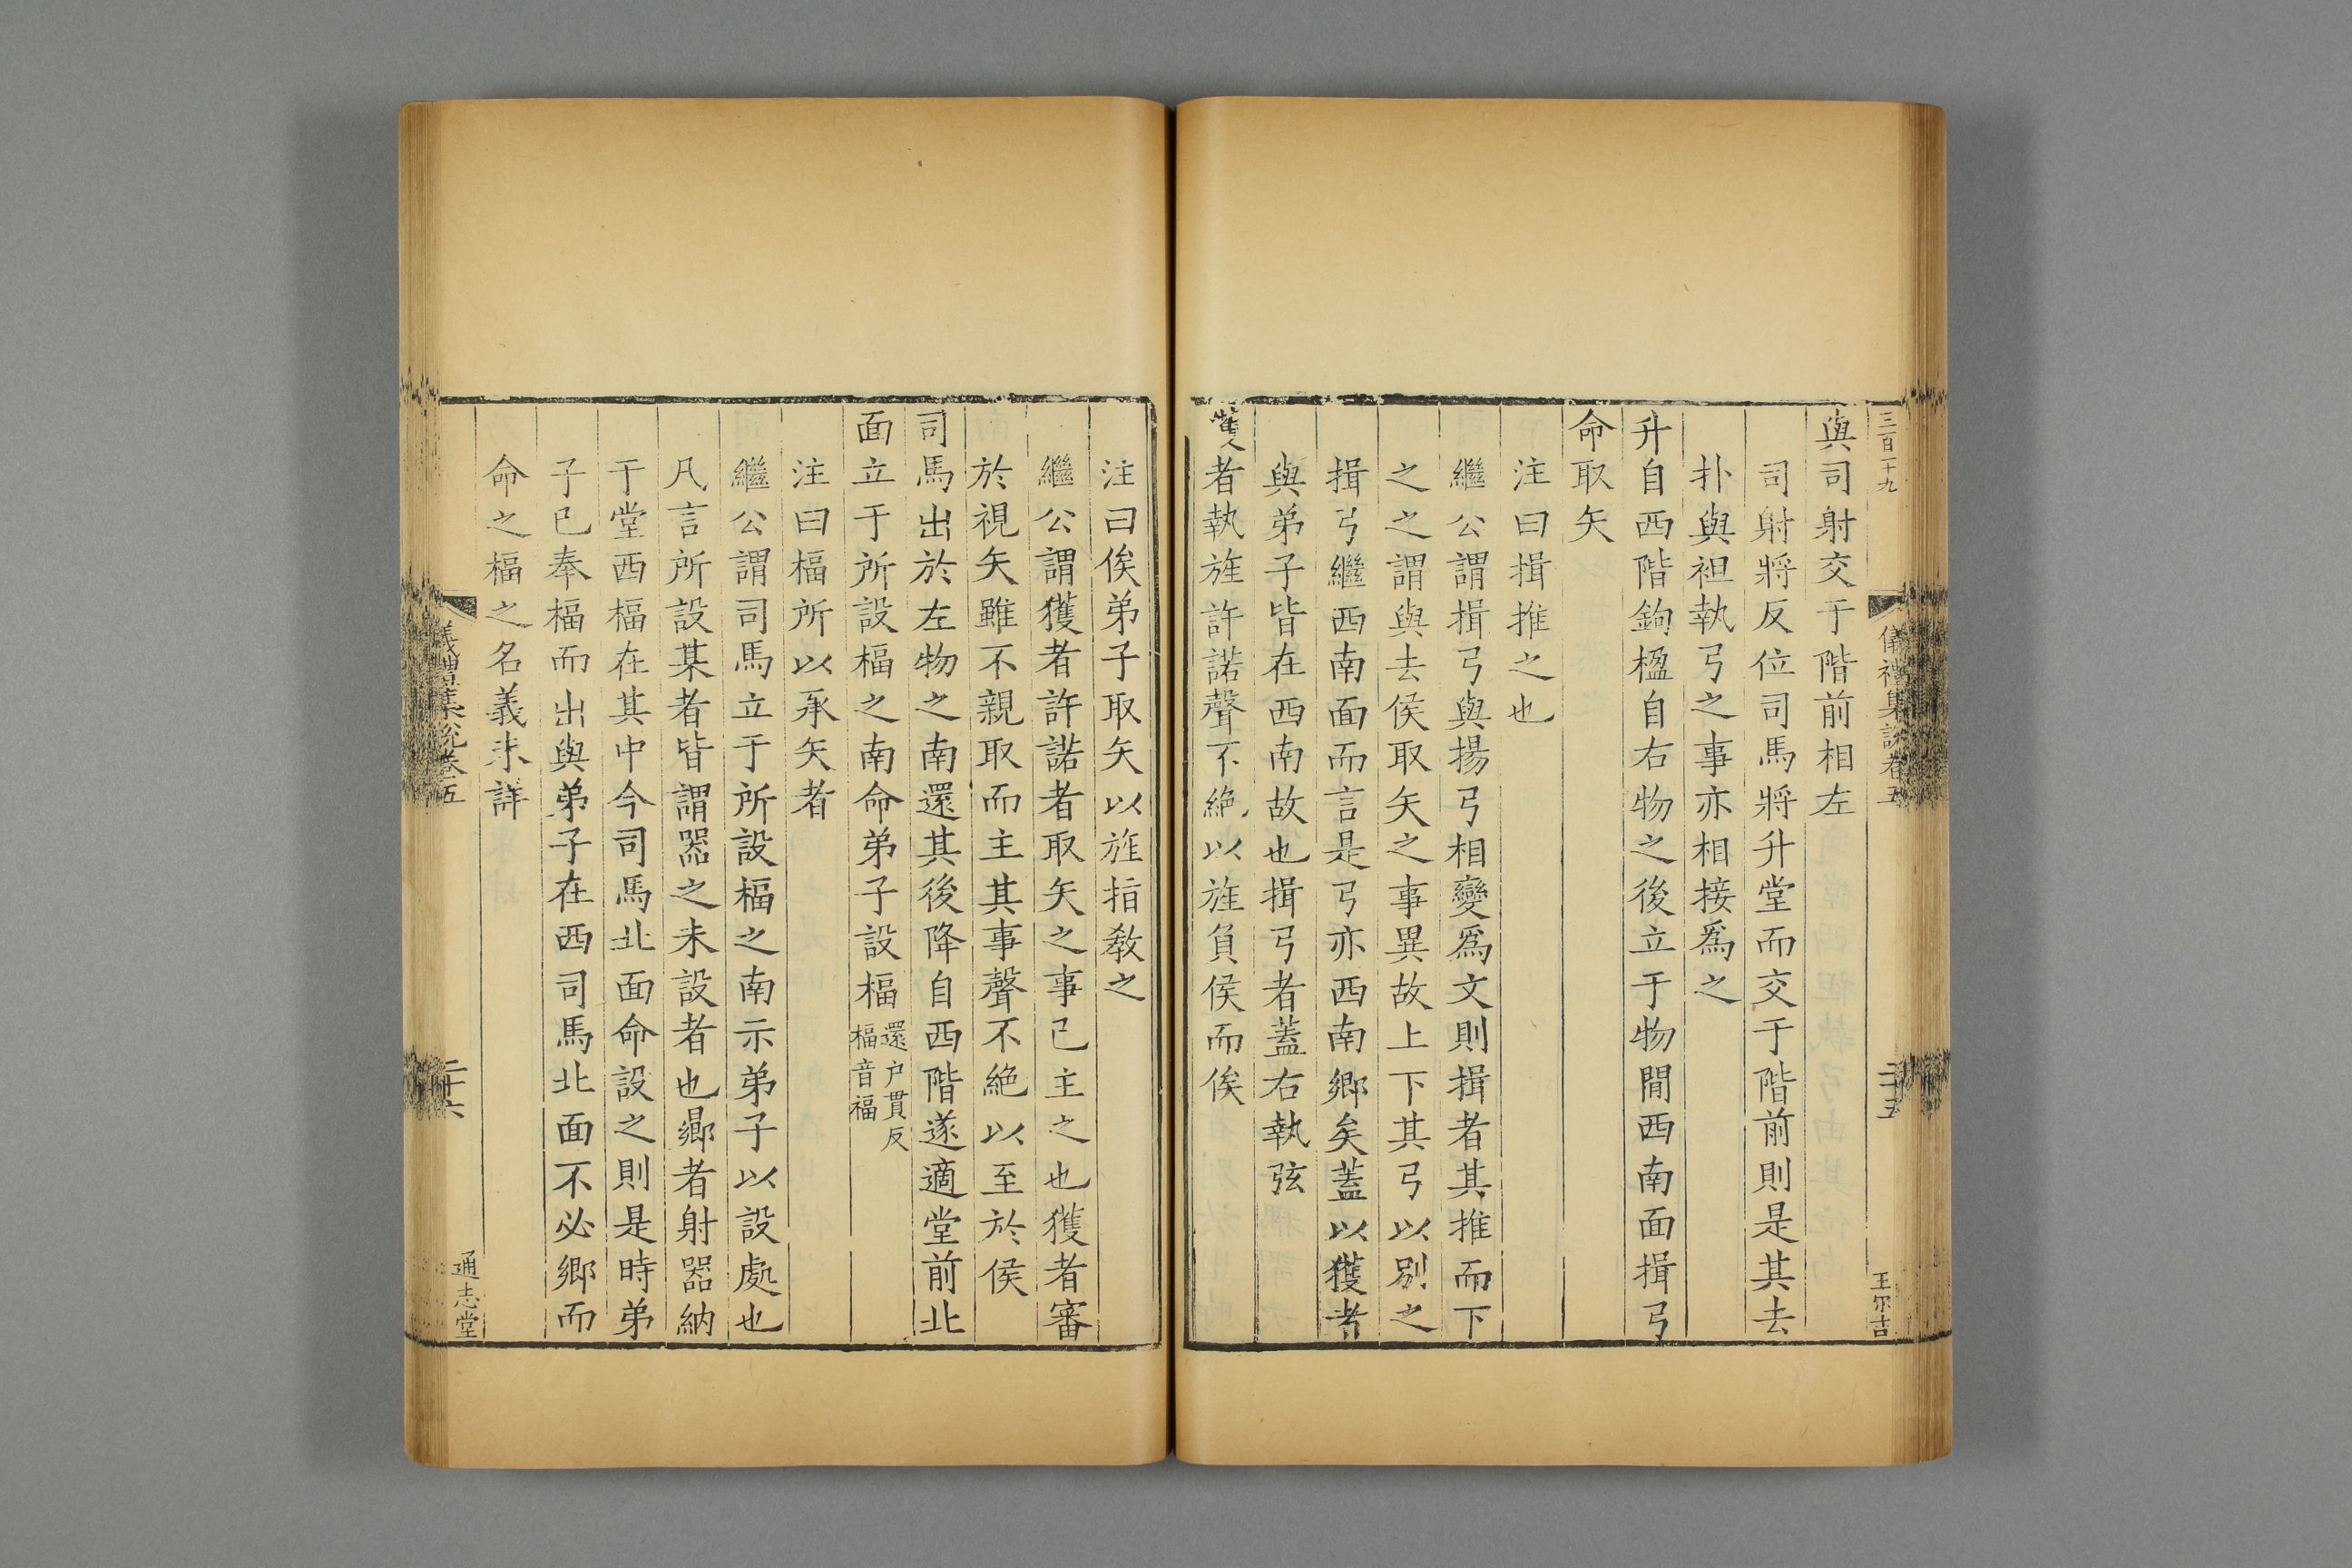 三百一十九
儀禮集說卷五
二十五
王尔吉
與司射交于階前相左
司射將反位司馬將升堂而交于階前則是其去
扑與袒執弓之事亦相接爲之
升自西階鉤楹自右物之後立于物閒西南面揖弓
命取矢
注曰揖推之也
繼公謂揖弓與揚弓相變爲文則揖者其推而下
之之謂與去侯取矢之事異故上下其弓以別之
揖弓繼西南面而言是弓亦西南鄉矣蓋以獲者
與弟子皆在西南故也揖弓者蓋右執弦
獲者執旌許諾聲不絶以旌負侯而俟
注曰俟弟子取矢以旌指敎之
繼公謂獲者許諾者取矢之事已主之也獲者審
於視矢雖不親取而主其事聲不絶以至於侯
司馬出於左物之南還其後降自西階遂適堂前北
面立于所設楅之南命弟子設楅還户貫反楅音福
注曰楅所以承矢者
繼公謂司馬立于所設楅之南示弟子以設處也
凡言所設某者皆謂器之未設者也鄉者射器納
于堂西楅在其中今司馬北面命設之則是時弟
子已奉楅而出與弟子在西司馬北面不必鄉而
命之楅之名義未詳
儀禮集說卷五
二十六
通志堂